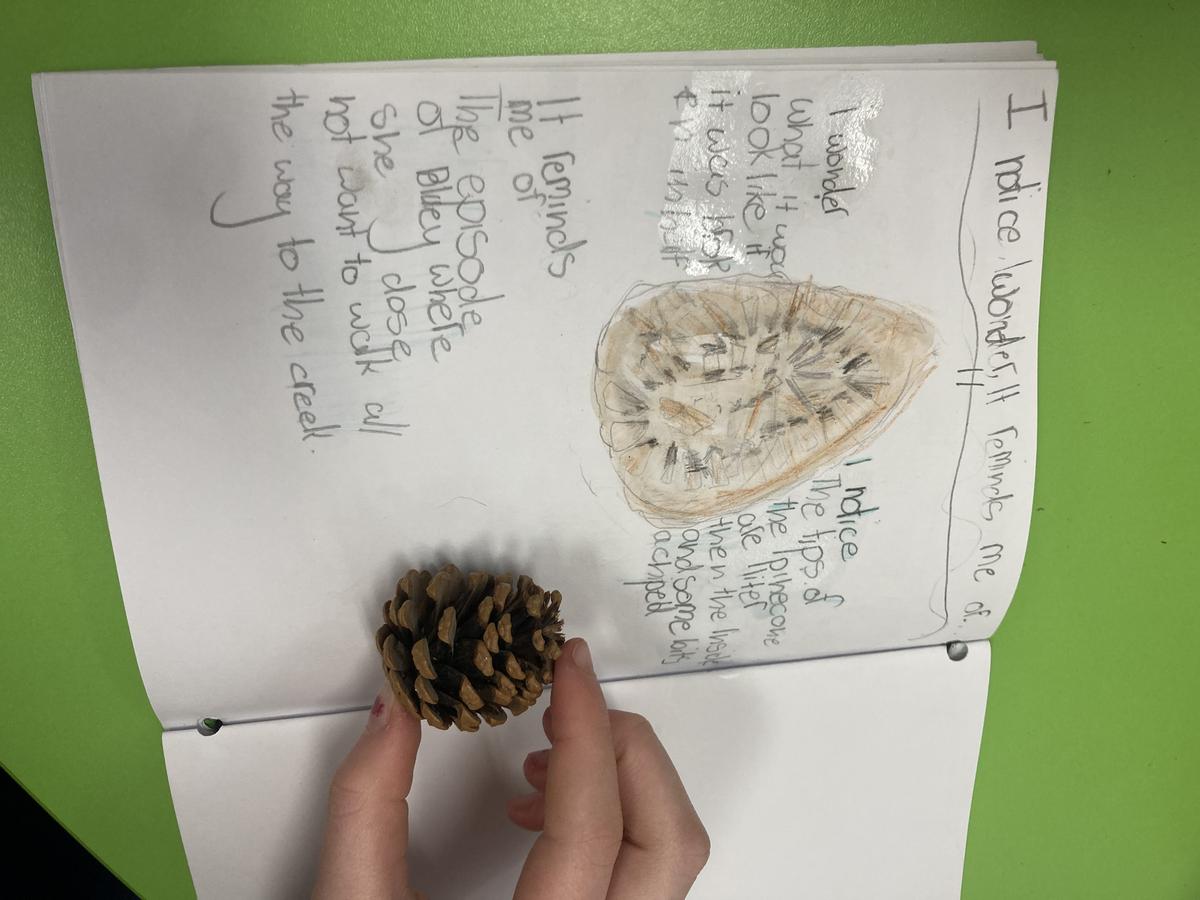 I notice, I wonder, It reminds me of..
I wonder
what it woo
look like if
it was brok
en in half
I notice
The tips of
the Pinecone
are liter
then the Inside
and some bits
achiped
It reminds
me of
The episode
of Bluey where
she dose
not want to walk all
the way to the creek.